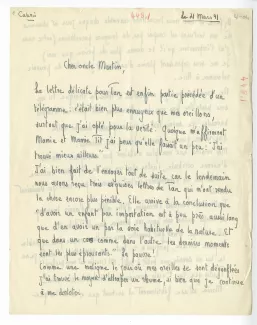 Calané
Le 21 Mars 41
Cher oncle Martin,
La lettre délicate pour Tan est enfin partie précédée d'un
télégramme. C'était bien plus ennuyeux que mes oreillons,
surtout que j'ai opté pour la vérité. Quoique m'affirment
Mamie et Mamie Tit j'ai peur qu'elle
trouvé mieux ailleurs.
J'ai bien fait de l'envoyer tout de suite car le lendemain
nous avons reçu trois exquises lettres de Tan qui m'ont rendu
la chose encore plus pénible. Elle arrive à la conclusion que
d'avoir un enfant par importation est à peu près aussi long
que d'en avoir un par la voie habituelle de la nature. "Et
que dans un cas comme dans l'autre les derniers moments
sont les plus épuisants". La pauvre!
Comme une maligne le jour où mes oreilles se sont dégonflées
j'ai trouvé le moyen d'attraper un rhume, si bien que je continue
à me dorloter.